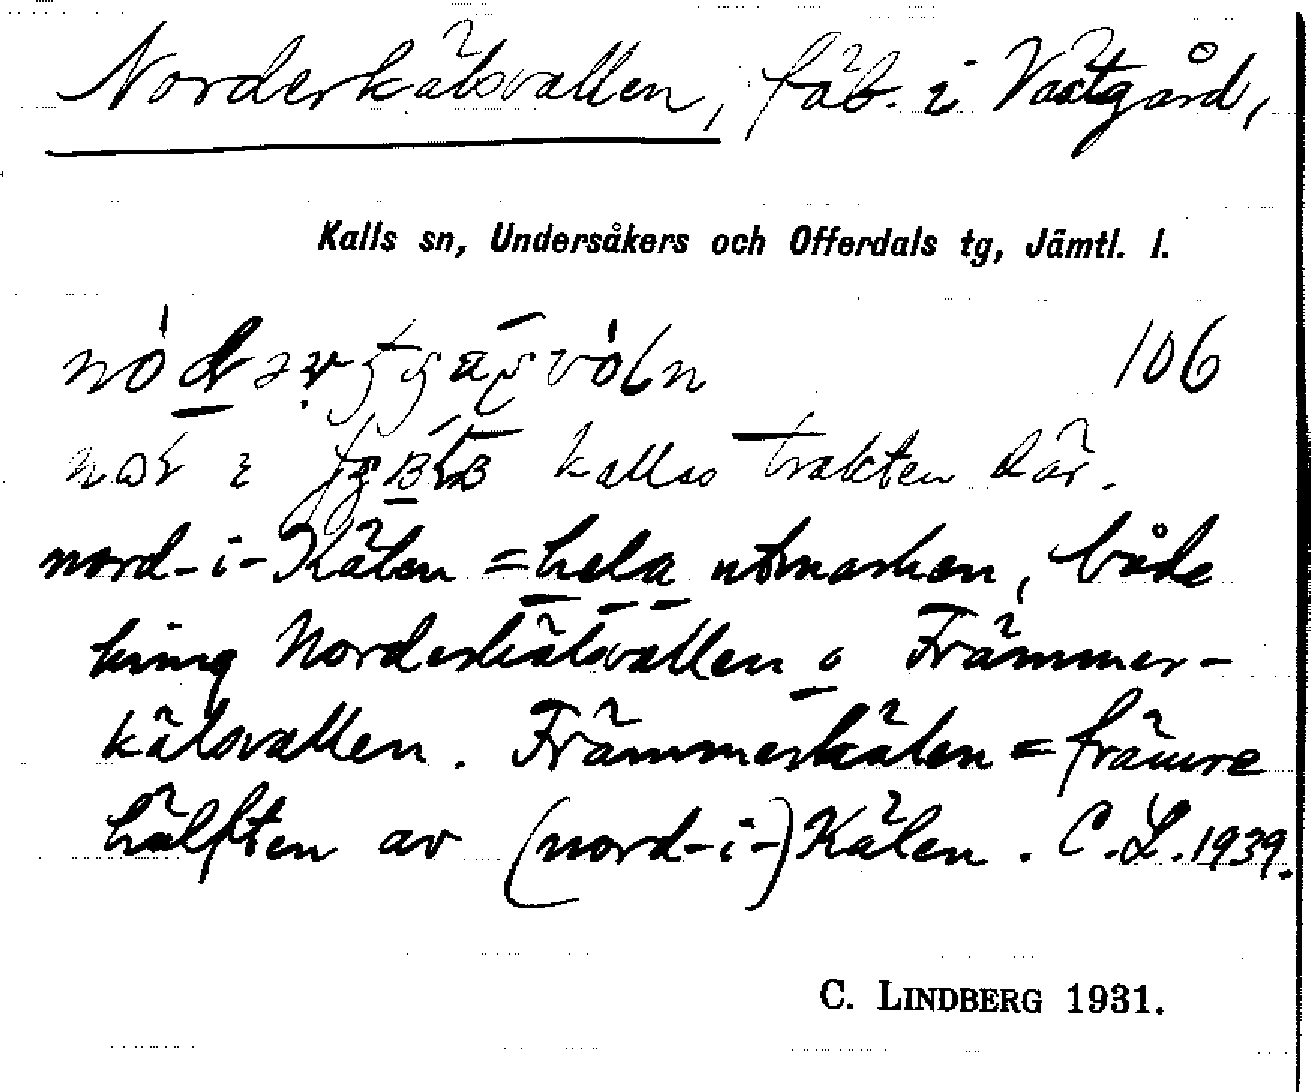 Norderkälsvallen, fäb. i Västgård,
Kalls sn, Undersåkers och Offerdals tg, Jämtl. l.
106
kallas trakten där.
nord-i-Kälen = hela utmarken, både
kring Norderkälsvallen o Främmer-
kälsvallen. Främmerkälen = främre
hälften av (nord-i-) Kälen. C.L. 1939.
C. LINDBERG 1931.